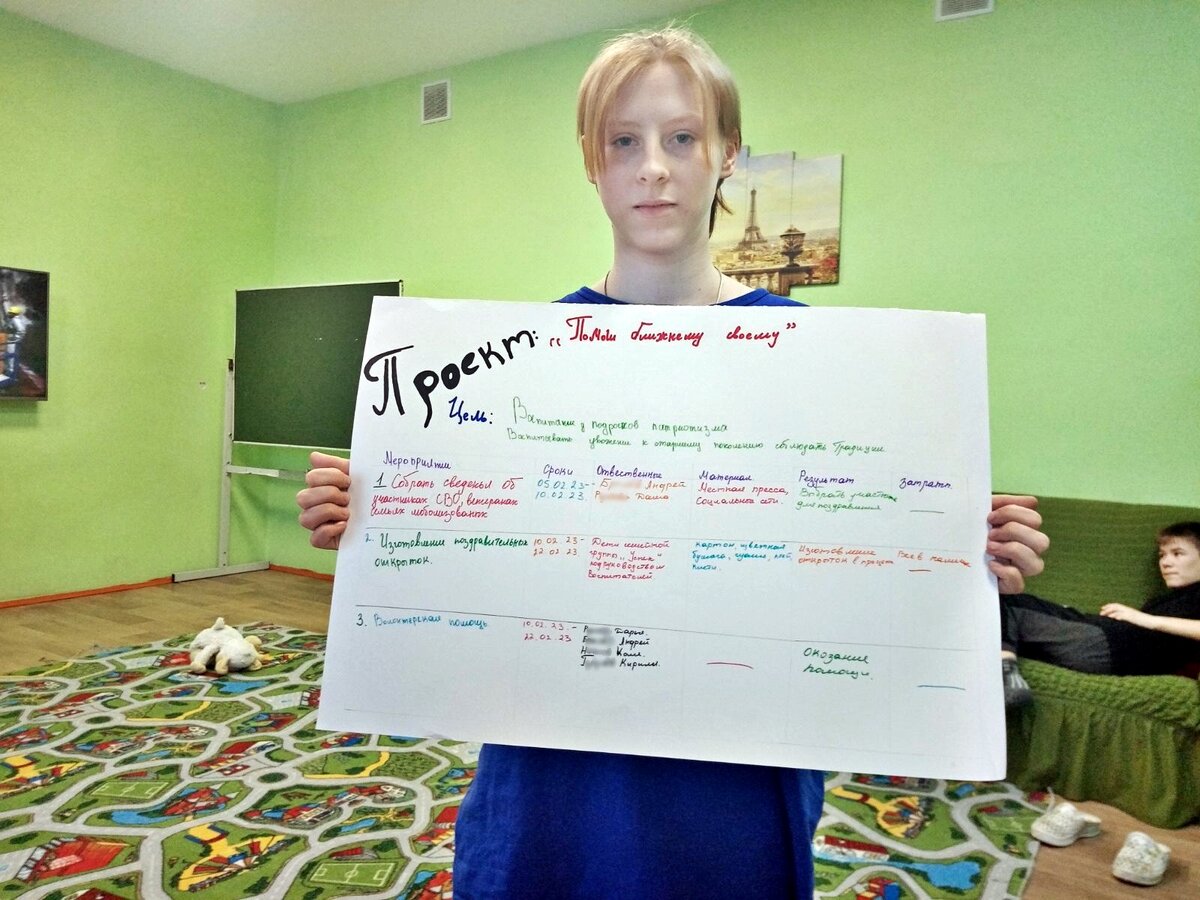 Проект: „Помоги ближнему своему"
Цель: Воспитание у подростков патриотизма
Воспитывать уважение к старшему поколению соблюдать Традиции
Мероприятия Сроки Ответственные Материал Результат Затраты
1 Собрать сведенья Об участниках СВО, ветеранах семьях мобилизованых
05.02.23-
10.02.23.
Андрей
Даша
Местная пресса,
Социальные сети.
Выбрать участников
для поздравления
—
2. Изготовление поздравительных
открыток.
10.02.23-
22.02.23
Дети семейной
группы „Успех"
под руководством
Воспитателей
картон, цветная
бумага, гуашь, клей,
кисти.
Изготовление
открыток
Все в наличии
—
3. Волонтерская помощь
10.02.23.-
22.02.23
Дарья.
Андрей
Коля.
Кирилл.
—
Оказание
помощи.
—